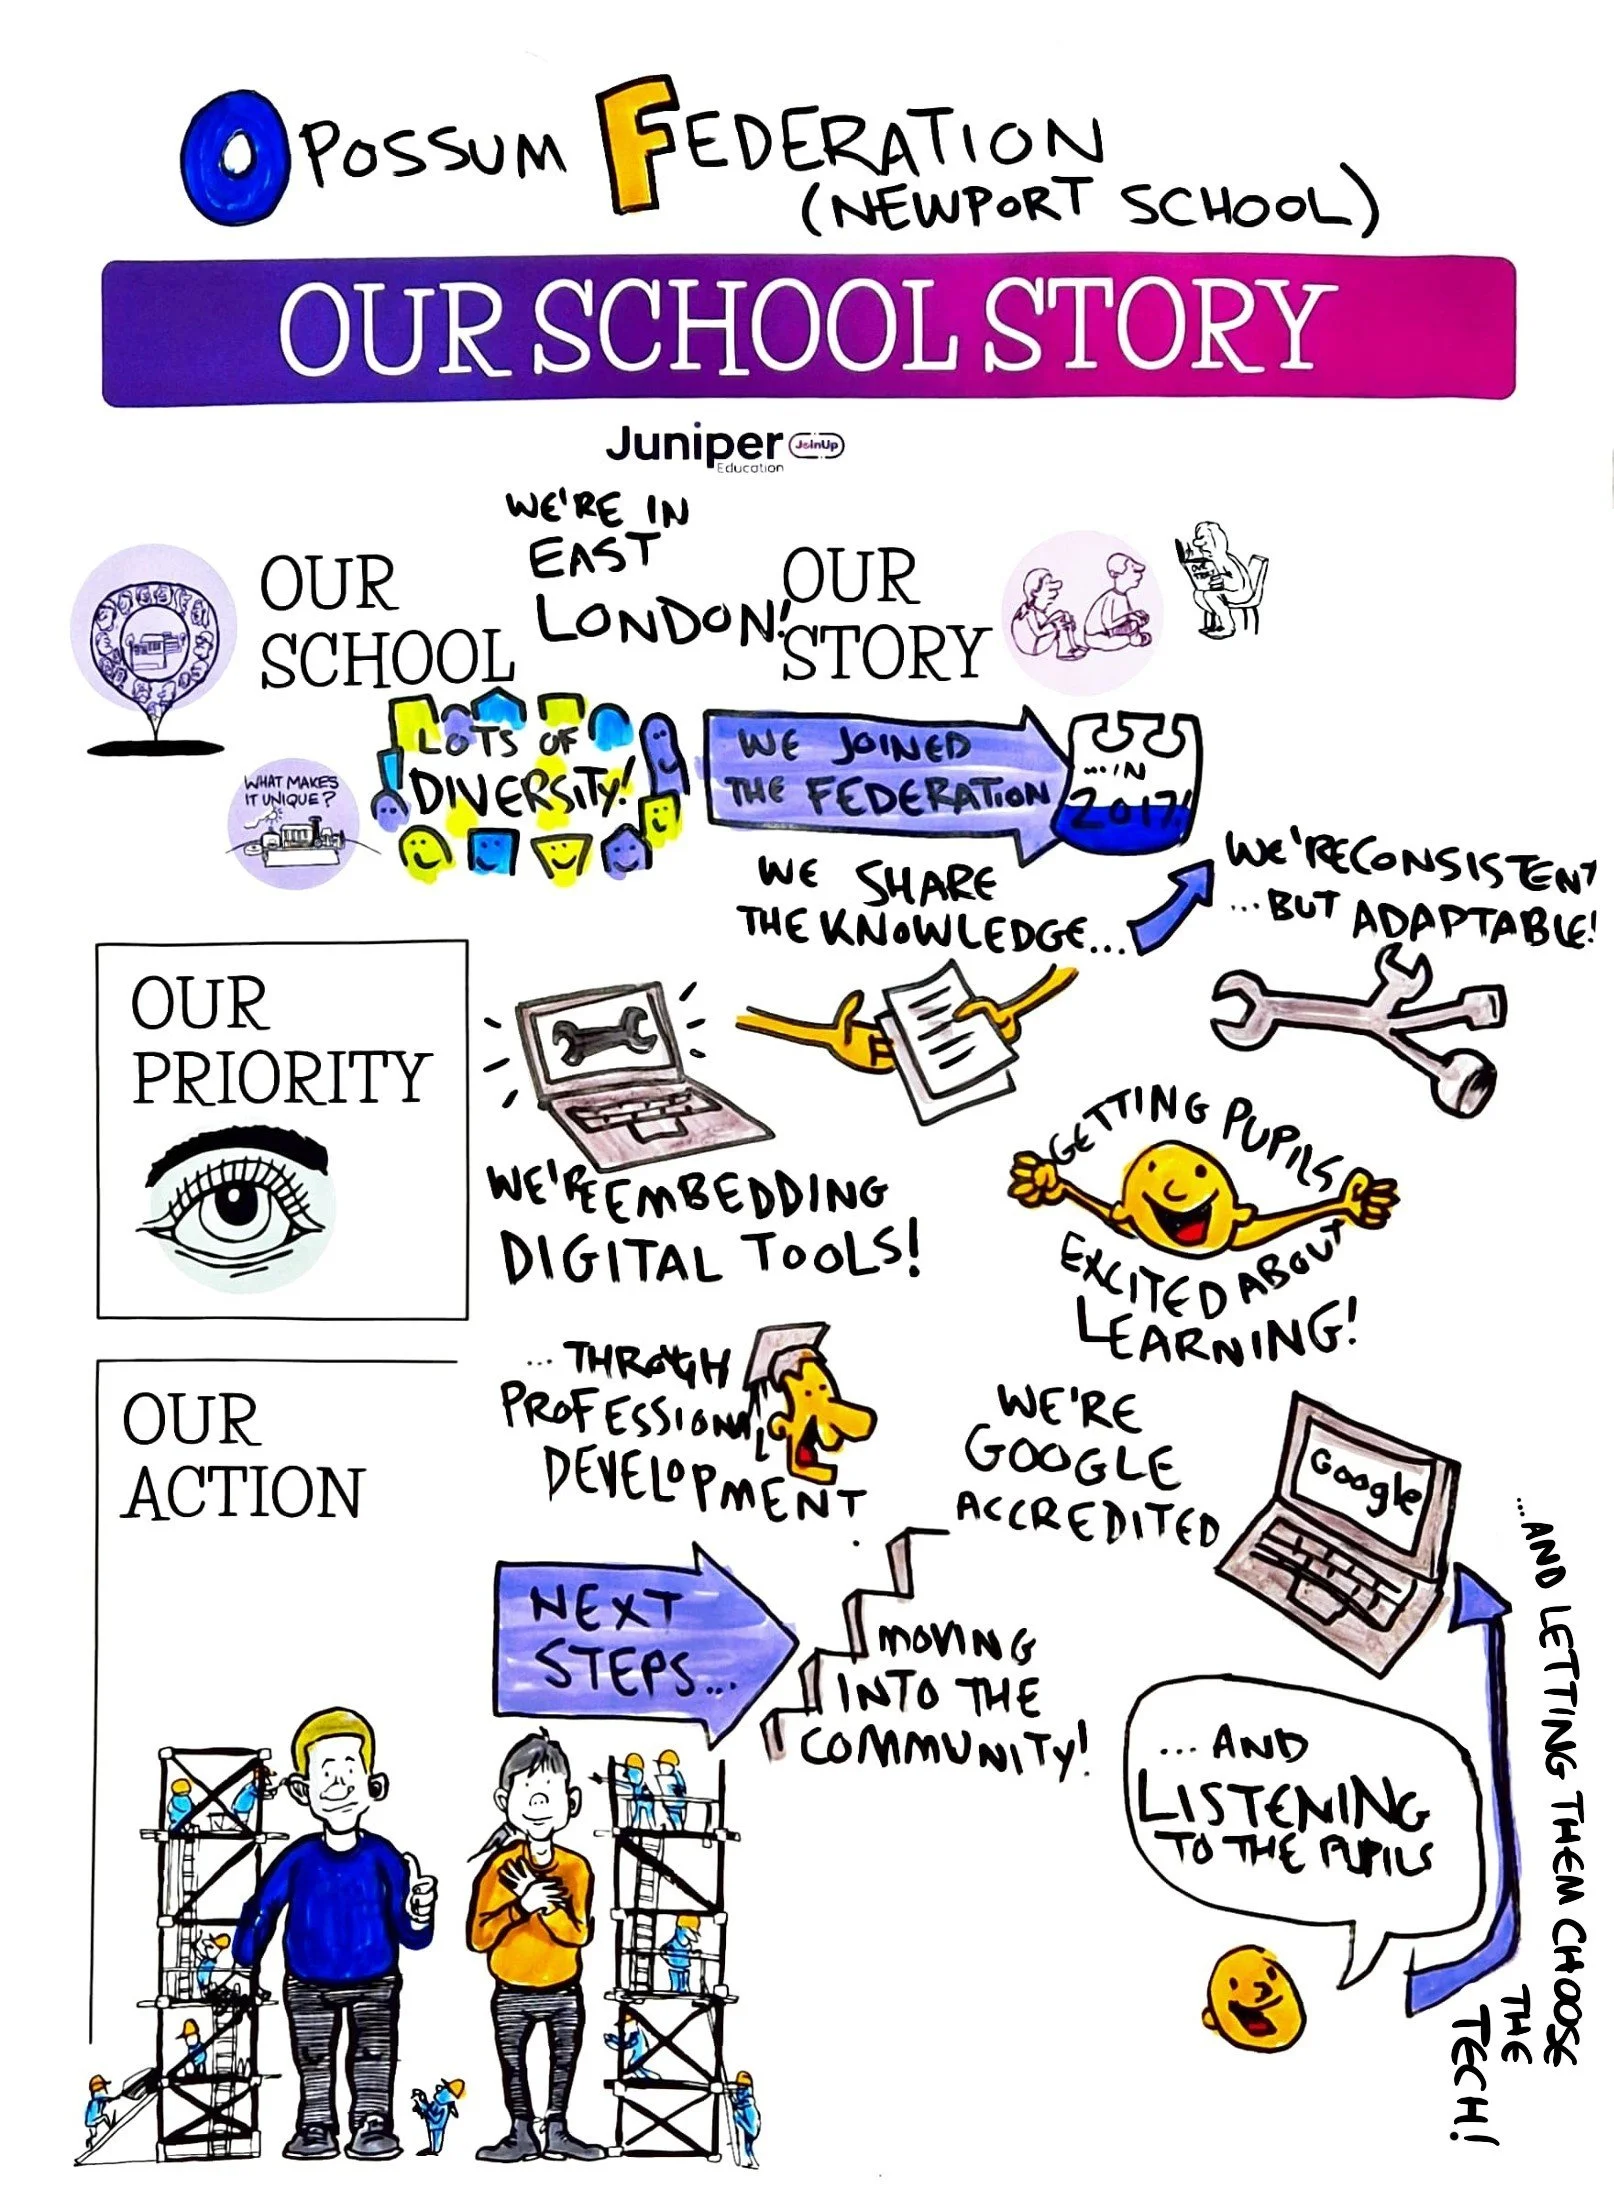 OPOSSUM FEDERATION
(NEWPORT SCHOOL)
OUR SCHOOL STORY
Juniper JoinUp
Education
OUR
SCHOOL
WE'RE IN
EAST
LONDON!
WHAT MAKES
IT UNIQUE?
LOTS OF
DIVERSITY!
OUR
STORY
WE JOINED
THE FEDERATION
...IN
2017!
WE SHARE
THE KNOWLEDGE...
WE'RE CONSISTENT
...BUT ADAPTABLE!
OUR
PRIORITY
WE'RE EMBEDDING
DIGITAL TOOLS!
GETTING PUPILS
EXCITED ABOUT
LEARNING!
OUR
ACTION
...THROUGH
PROFESSIONAL
DEVELOPMENT
WE'RE
GOOGLE
ACCREDITED
Google
NEXT
STEPS...
MOVING
INTO THE
COMMUNITY!
...AND
LISTENING
TO THE PUPILS
...AND LETTING THEM CHOOSE
THE
TECH!